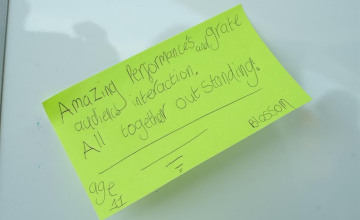 Amazing Performances and grate
audience interaction.
All together outstanding.
age
11
Blossom